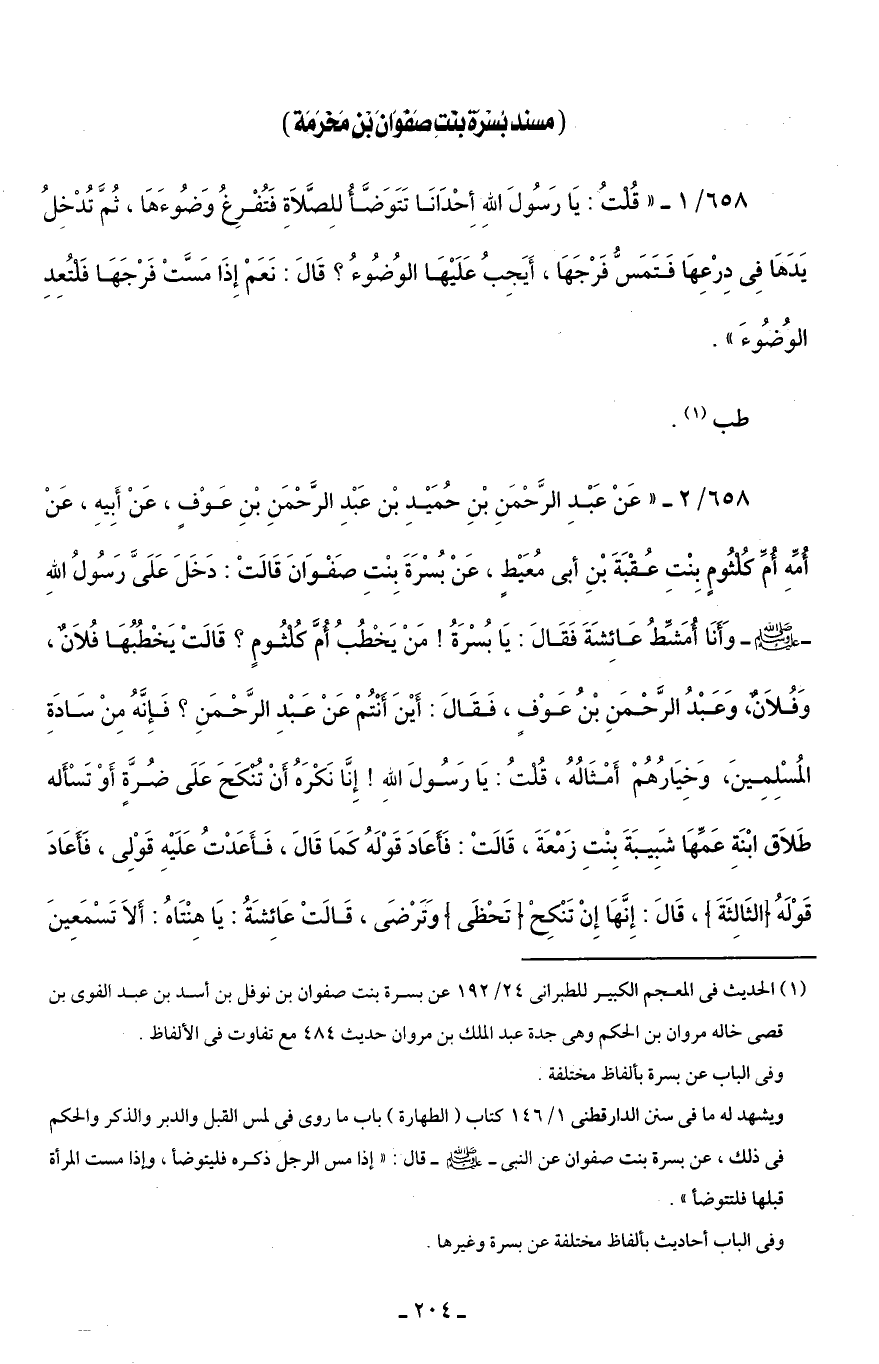 (مسند بُسْرَة بِنْتِ صَفْوَانَ بْنِ مَخْرَمَة)
١/٦٥٨ ـ « قُلْتُ : يَا رَسُولَ اللهِ أحْدَانَا تَتَوَضَّأُ للِصَّلاَةِ فَتُفْرِغُ وَضُوءَهَا ، ثُمَّ تُدْخِلُ
يَدَهَا فِى دِرْعِهَا فَتَمَسُّ فَرْجَهَا ، أَيَجِبُ عَلَيْهَا الوُضُوءُ ؟ قَالَ : نَعَمْ إِذَا مَسَّتْ فَرْجَهَا فَلْتُعِدِ
الوُضُوءَ » .
طب (١) .
٢/٦٥٨ ـ « عَنْ عَبْدِ الرَّحْمَنِ بْنِ حُمَيْدِ بْنِ عَبْدِ الرَّحْمَنِ بْنِ عَوْفٍ ، عَنْ أَبِيهِ ، عَنْ
أُمِّهِ أُمِّ كُلْثُومٍ بِنْتِ عُقْبَةَ بْنِ أبى مُعَيْطٍ ، عَنْ بُسْرَةَ بِنْتِ صَفْوَانَ قَالَتْ : دَخَلَ عَلَىَّ رَسُولُ اللهِ
ـ ﷺ ـ وَأَنَا أُمَشِّطُ عَائِشَةَ فَقَالَ : يَا بُسْرَةُ ! مَنْ يَخْطُبُ أُمَّ كُلْثُومٍ ؟ قَالَتْ يَخْطُبُهَا فُلاَنٌ ،
وَفُلاَنٌ، وَعَبْدُ الرَّحْمَنِ بْنُ عَوْفٍ ، فَقَالَ : أَيْنَ أَنْتُمْ عَنْ عَبْدِ الرَّحْمَنِ ؟ فَإِنَّهُ مِنْ سَادَةِ
المُسْلِمِينَ، وَخِيَارُهُمْ أَمْثَالُهُ ، قُلْتُ : يَا رَسُولَ اللهِ ! إِنَّا نَكْرَهُ أَنْ تُنْكَحَ عَلَى ضُرَّةٍ أَوْ تَسْأله
طَلاَقِ ابْنَةِ عَمِّهَا شَيبَةَ بِنْتِ زَمْعَةَ ، قَالَتْ : فَأَعَادَ قَوْلَهُ كَمَا قَالَ ، فَأَعَدْتُ عَلَيْهِ قَوْلِى ، فَأَعَادَ
قَوْلَهُ {الثَّالِثَةَ} ، قَالَ : إِنَّهَا إِنْ تَنْكِحْ {تَحْظَى} وَتَرْضَى ، قَالَتْ عَائِشَةُ : يَا هِنْتَاهُ : أَلاَ تَسْمَعِينَ
(١) الحديث فى المعجم الكبير للطبرانى ٢٤/ ١٩٢ عن بسرة بنت صفوان بن نوفل بن أسد بن عبد الفوى بن
قصى خاله مروان بن الحكم وهى جدة عبد الملك بن مروان حديث ٤٨٤ مع تفاوت فى الألفاظ .
وفى الباب عن بسرة بألفاظ مختلفة .
ويشهد له ما فى سنن الدارقطنى ١/ ١٤٦ كتاب ( الطهارة ) باب ما روى فى لمس القبل والدبر والذكر والحكم
فى ذلك ، عن بسرة بنت صفوان عن النبى ـ ﷺ ـ قال : « إذا مس الرجل ذكره فليتوضأ ، وإذا مست المرأة
قبلها فلتتوضأ » .
وفى الباب أحاديث بألفاظ مختلفة عن بسرة وغيرها .
ـ ٢٠٤ ـ